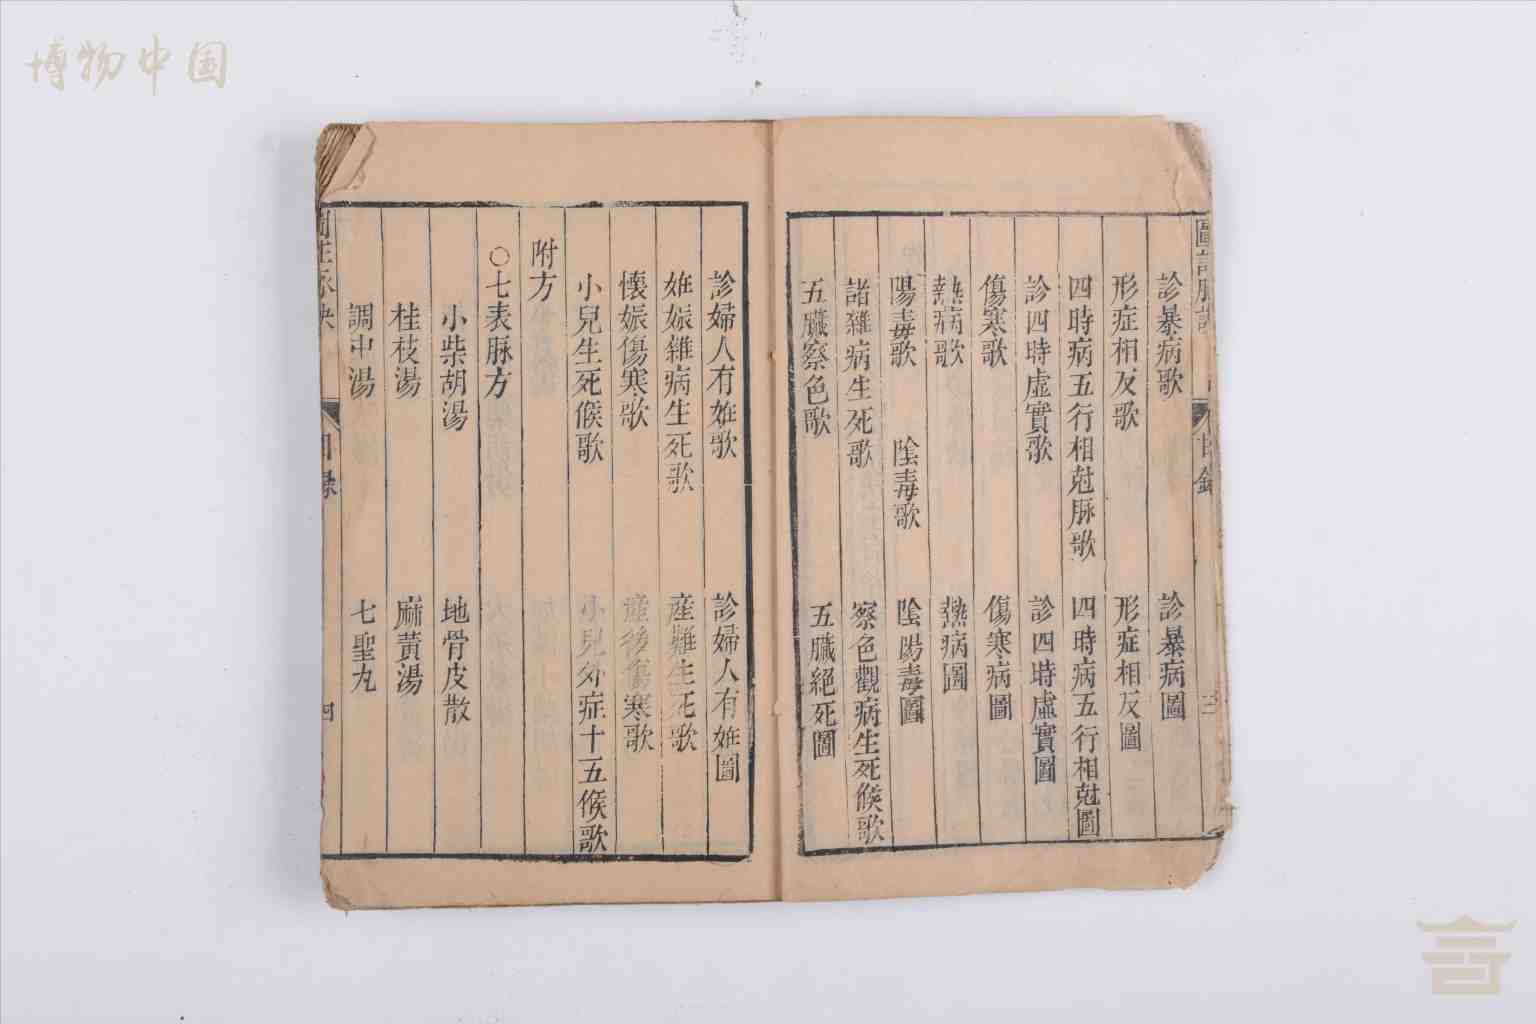 博物中国
圖註脉訣 目錄 三
診暴病歌 診暴病圖
形症相反歌 形症相反圖
四時病五行相尅脉歌 四時病五行相尅圖
診四時虛實歌 診四時虛實圖
傷寒歌 傷寒病圖
熱病歌 熱病圖
陽毒歌 陰毒歌 陰陽毒圖
諸雜病生死歌 察色觀病生死候歌
五臟察色歌 五臟絕死圖
診婦人有姙歌 診婦人有姙圖
姙娠雜病生死歌 產難生死歌
懷娠傷寒歌 產後傷寒歌
小兒生死候歌 小兒外症十五候歌
附方
○七表脉方
小柴胡湯 地骨皮散
桂枝湯 麻黃湯
調中湯 七聖丸
圖註脉訣 目錄 四